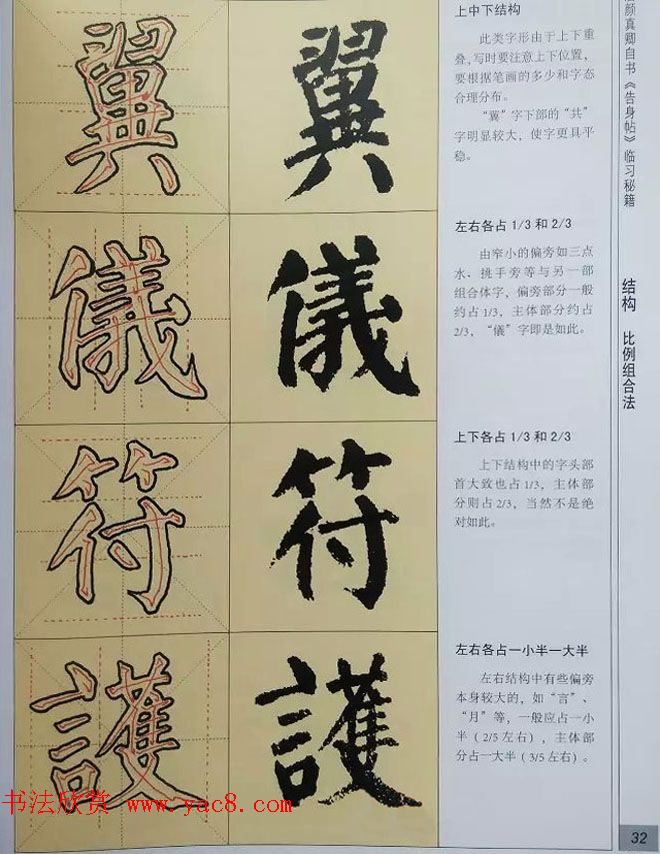 翼
上中下结构
此类字形由于上下重
叠,写时要注意上下位置,
要根据笔画的多少和字态
合理分布。
“翼”字下部的“共”
字明显较大，使字更具平
稳。
儀
左右各占 1/3 和 2/3
由窄小的偏旁如三点
水、挑手旁等与另一部
组合体字，偏旁部分一般
约占1/3，主体部分约占
2/3，“儀”字即是如此。
符
上下各占 1/3 和 2/3
上下结构中的字头部
首大致也占1/3，主体部
分则占2/3，当然不是绝
对如此。
護
左右各占一小半一大半
左右结构中有些偏旁
本身较大的，如“言”、
“月”等，一般应占一小
半（2/5左右），主体部
分占一大半（3/5左右）。
颜真卿自书《告身帖》临习秘籍
结构 比例组合法
32
书法欣赏 www.yac8.com